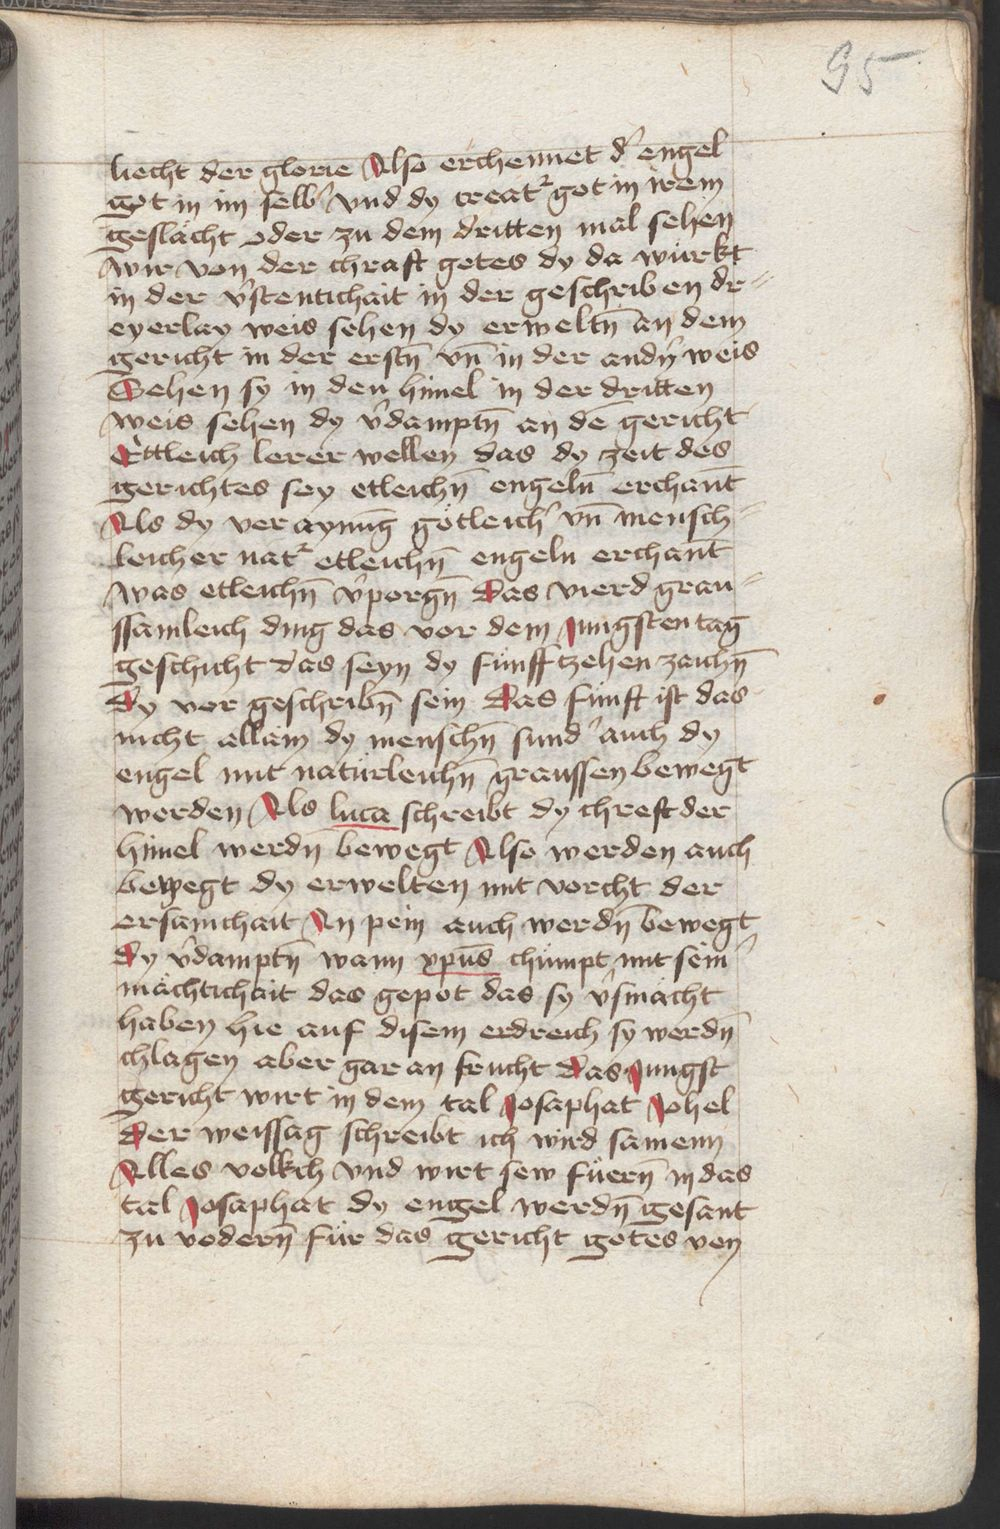 95
liecht der glorie Also erchennet d' engel
got in im selb' vnd dy creat' got in irem
geslächt oder zu dem dritten mal sehen
wir von der chraft gotes dy da würkt
in der v'stentichait in der geschriben dr=
eyerlay weis sehen dy erweltn̄ an dem
gericht in der erstn̄ vn̄ in der andn̄ weis
Sehen sy in den himel in der dritten
weis sehen dy v'damptn̄ an dē gericht
Ettleich lerer wellen das dy zeit des
gerichtes sey etleichn̄ engeln̄ erchant
Als dy veraynūg götleich' vn̄ mensch=
leicher nat' etleichn̄ engeln erchant
was etleichn̄ v'porgn̄ Das vierd grau=
ssamleich ding das vor dem Jungsten tag
geschicht das seyn dy fünfftzehen zaichn̄
Dy vor geschribn̄ sein Das fünft ist das
nicht allain dy menschn̄ sund' auch dy
engel mit natürleichn̄ graussen bewegt
werden Als luca schreibt dy chreft der
himel werdn̄ bewegt Also werden auch
bewegt dy erwelten mit vorcht der
ersamchait An pein auch werdn̄ bewegt
Dy v'damptn̄ wann xp̄us chümpt mit sein'
mächtichait das gepot das sy v'smächt
haben hie auf disem erdreich sy werdn̄
chlagen aber gar an frucht Das Jungst
gericht wirt in dem tal Josaphat Johel
Der weissag schreibt ich wird samenn
Alles volkch vnd wirt sew füern̄ in das
tal Josaphat dy engel werdn̄ gesant
zu vodern̄ für das gericht gotes von